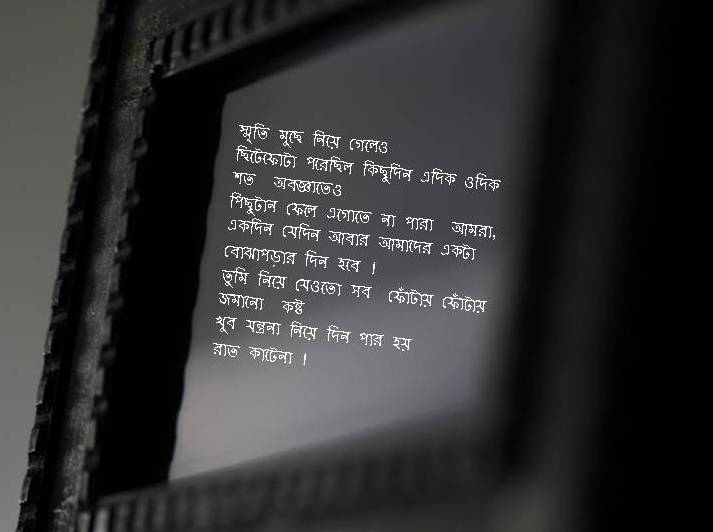 স্মৃতি মুছে নিয়ে গেলেও
ছিটেফোটা পরেছিল কিছুদিন এদিক ওদিক
শত অবজ্ঞাতেও
পিছুটান ফেলে এগোতে না পারা আমরা,
একদিন যেদিন আবার আমাদের একটা
বোঝাপড়ার দিন হবে !
তুমি নিয়ে যেওতো সব ফোঁটায় ফোঁটায়
জমানো কষ্ট
খুব যন্ত্রনা নিয়ে দিন পার হয়
রাত কাটেনা !